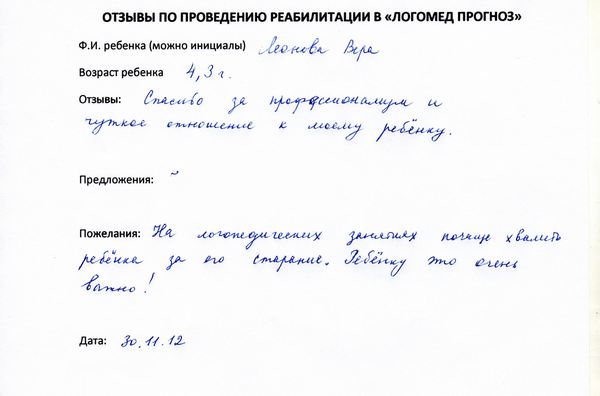 ОТЗЫВЫ ПО ПРОВЕДЕНИЮ РЕАБИЛИТАЦИИ В «ЛОГОМЕД ПРОГНОЗ»
Ф.И. ребенка (можно инициалы) Леонова Вера
Возраст ребенка 4,3 г.
Отзывы: Спасибо за профессионализм и
чуткое отношение к моему ребёнку.
Предложения: ~
Пожелания: На логопедических занятиях почаще хвалить
ребёнка за его старание. Ребёнку это очень
важно!
Дата: 30.11.12